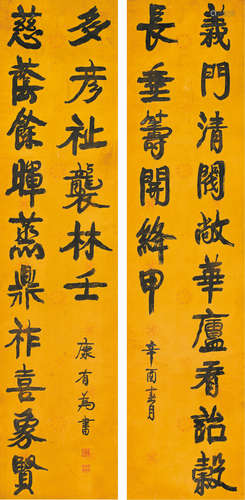 義門清閥敞華廬看詒穀
長垂籌開絳甲
辛酉十二月
慈蔭餘暉蒸鼎祚喜象賢
多彥祉襲林壬
康有為書